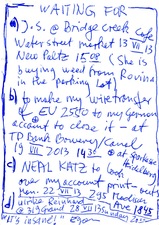 WAITING FOR
a) J.S. @ Bridge Creek Cafe
Water Street Market 13 VII 13
New Paltz 1508 (She is
buying weed from Rovina
in the parking lot)
b) to make my wire transfer
of EU 2550 to my German
account to close it – at
TD Bank Bowery/Canal
19 VII 2013 1431
@ Sparkasse Heidelberg
c) NEAL KATZ to look
over my account print-outs
22 VII 13 295 Madison Ave 1845
d) Ulrike Reinhard
@ 319 Grand 28 VII 13 Sunday
"It's insane!"